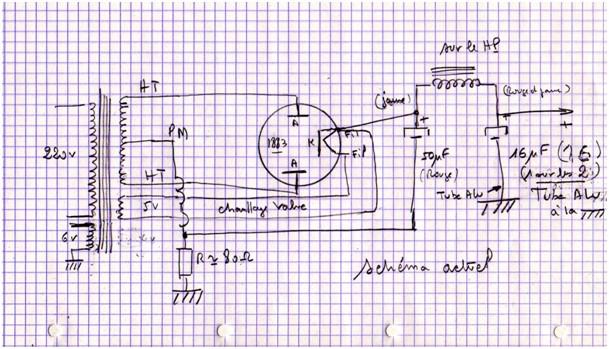 sur le HP
HT
PM
220v
A
1883
K
Fil
Fil
A
(jaune)
+
50µF
(Rouge)
(Rouge et jaune)
+
+
16µF (1,6)
Tube Alu
Tube Alu
à la
HT
5v
chauffage valve
6v
R ≃ 80Ω
schéma actuel